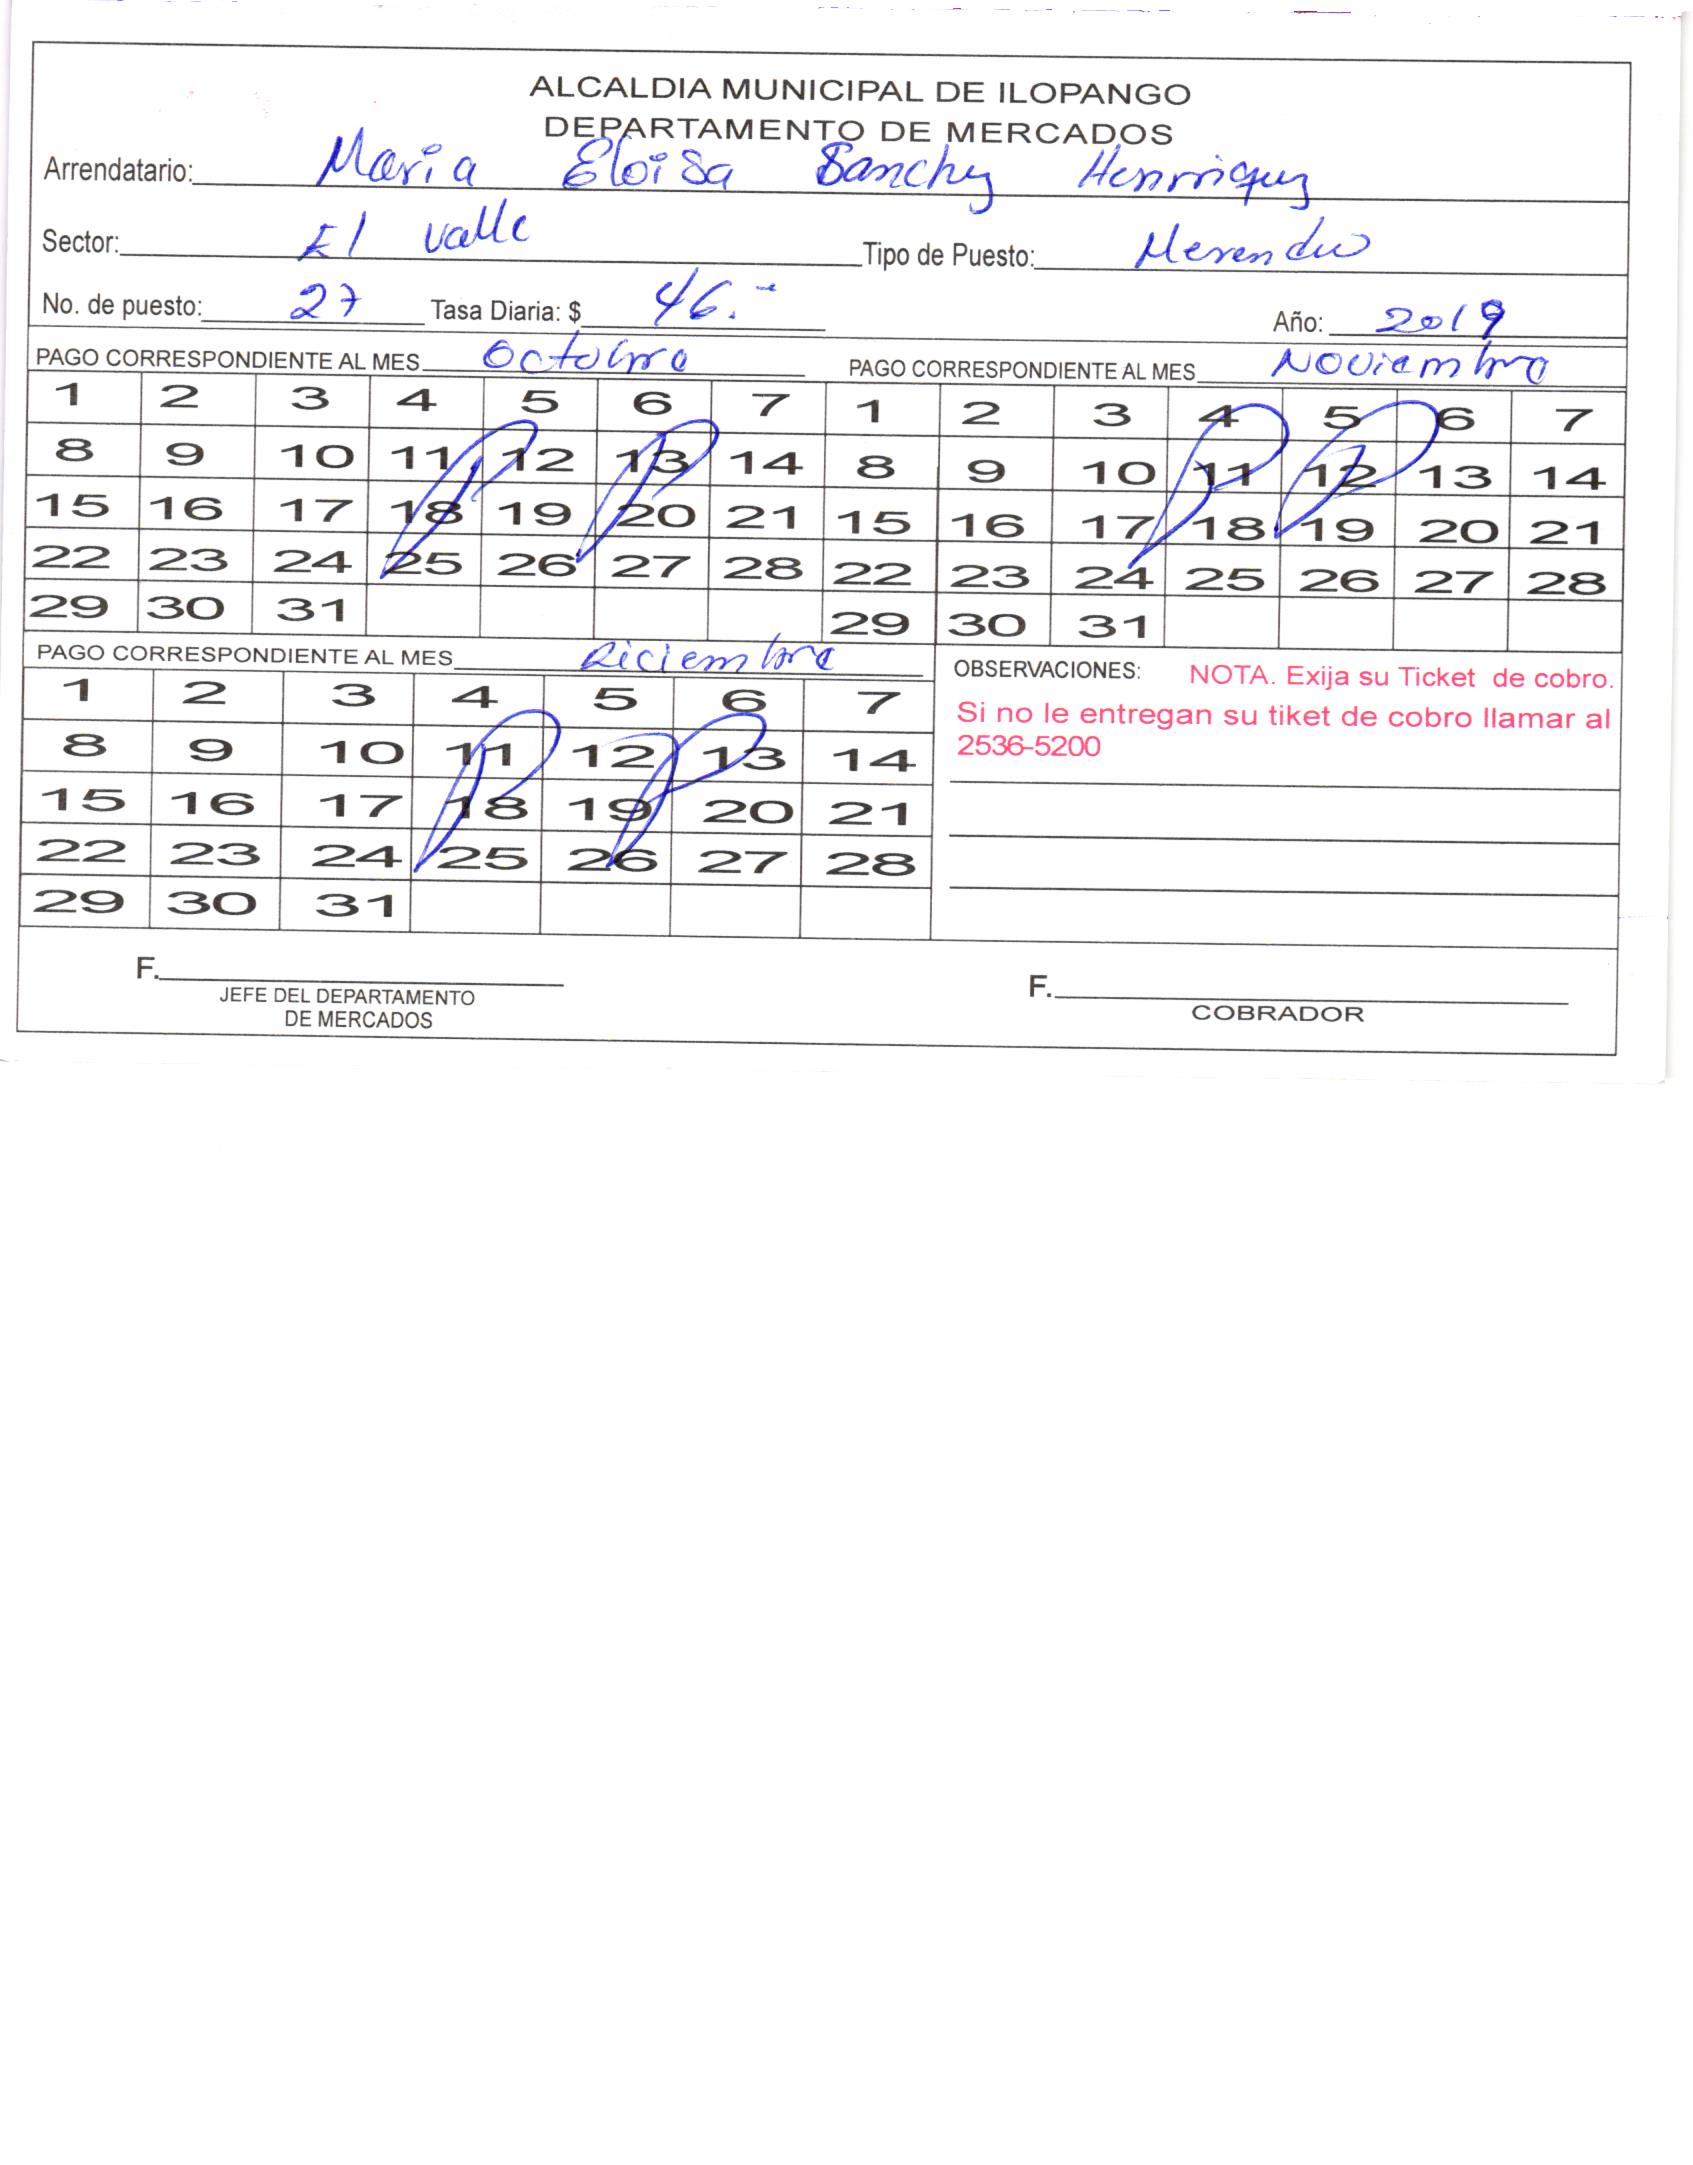 ALCALDIA MUNICIPAL DE ILOPANGO
DEPARTAMENTO DE MERCADOS
Arrendatario: Maria Eloisa Sanchez Henrriquez
Sector: El valle Tipo de Puesto:
No. de puesto: 27 Tasa Diaria: $ 46.- Año: 2019
PAGO CORRESPONDIENTE AL MES Octubre
1 2 3 4 5 6 7
8 9 10 11 12 13 14
15 16 17 18 19 20 21
22 23 24 25 26 27 28
29 30 31
PAGO CORRESPONDIENTE AL MES Noviembre
1 2 3 4 5 6 7
8 9 10 11 12 13 14
15 16 17 18 19 20 21
22 23 24 25 26 27 28
29 30 31
PAGO CORRESPONDIENTE AL MES Diciembre
1 2 3 4 5 6 7
8 9 10 11 12 13 14
15 16 17 18 19 20 21
22 23 24 25 26 27 28
29 30 31
OBSERVACIONES: NOTA. Exija su Ticket de cobro.
Si no le entregan su tiket de cobro llamar al
2536-5200
F.
JEFE DEL DEPARTAMENTO
DE MERCADOS
F.
COBRADOR